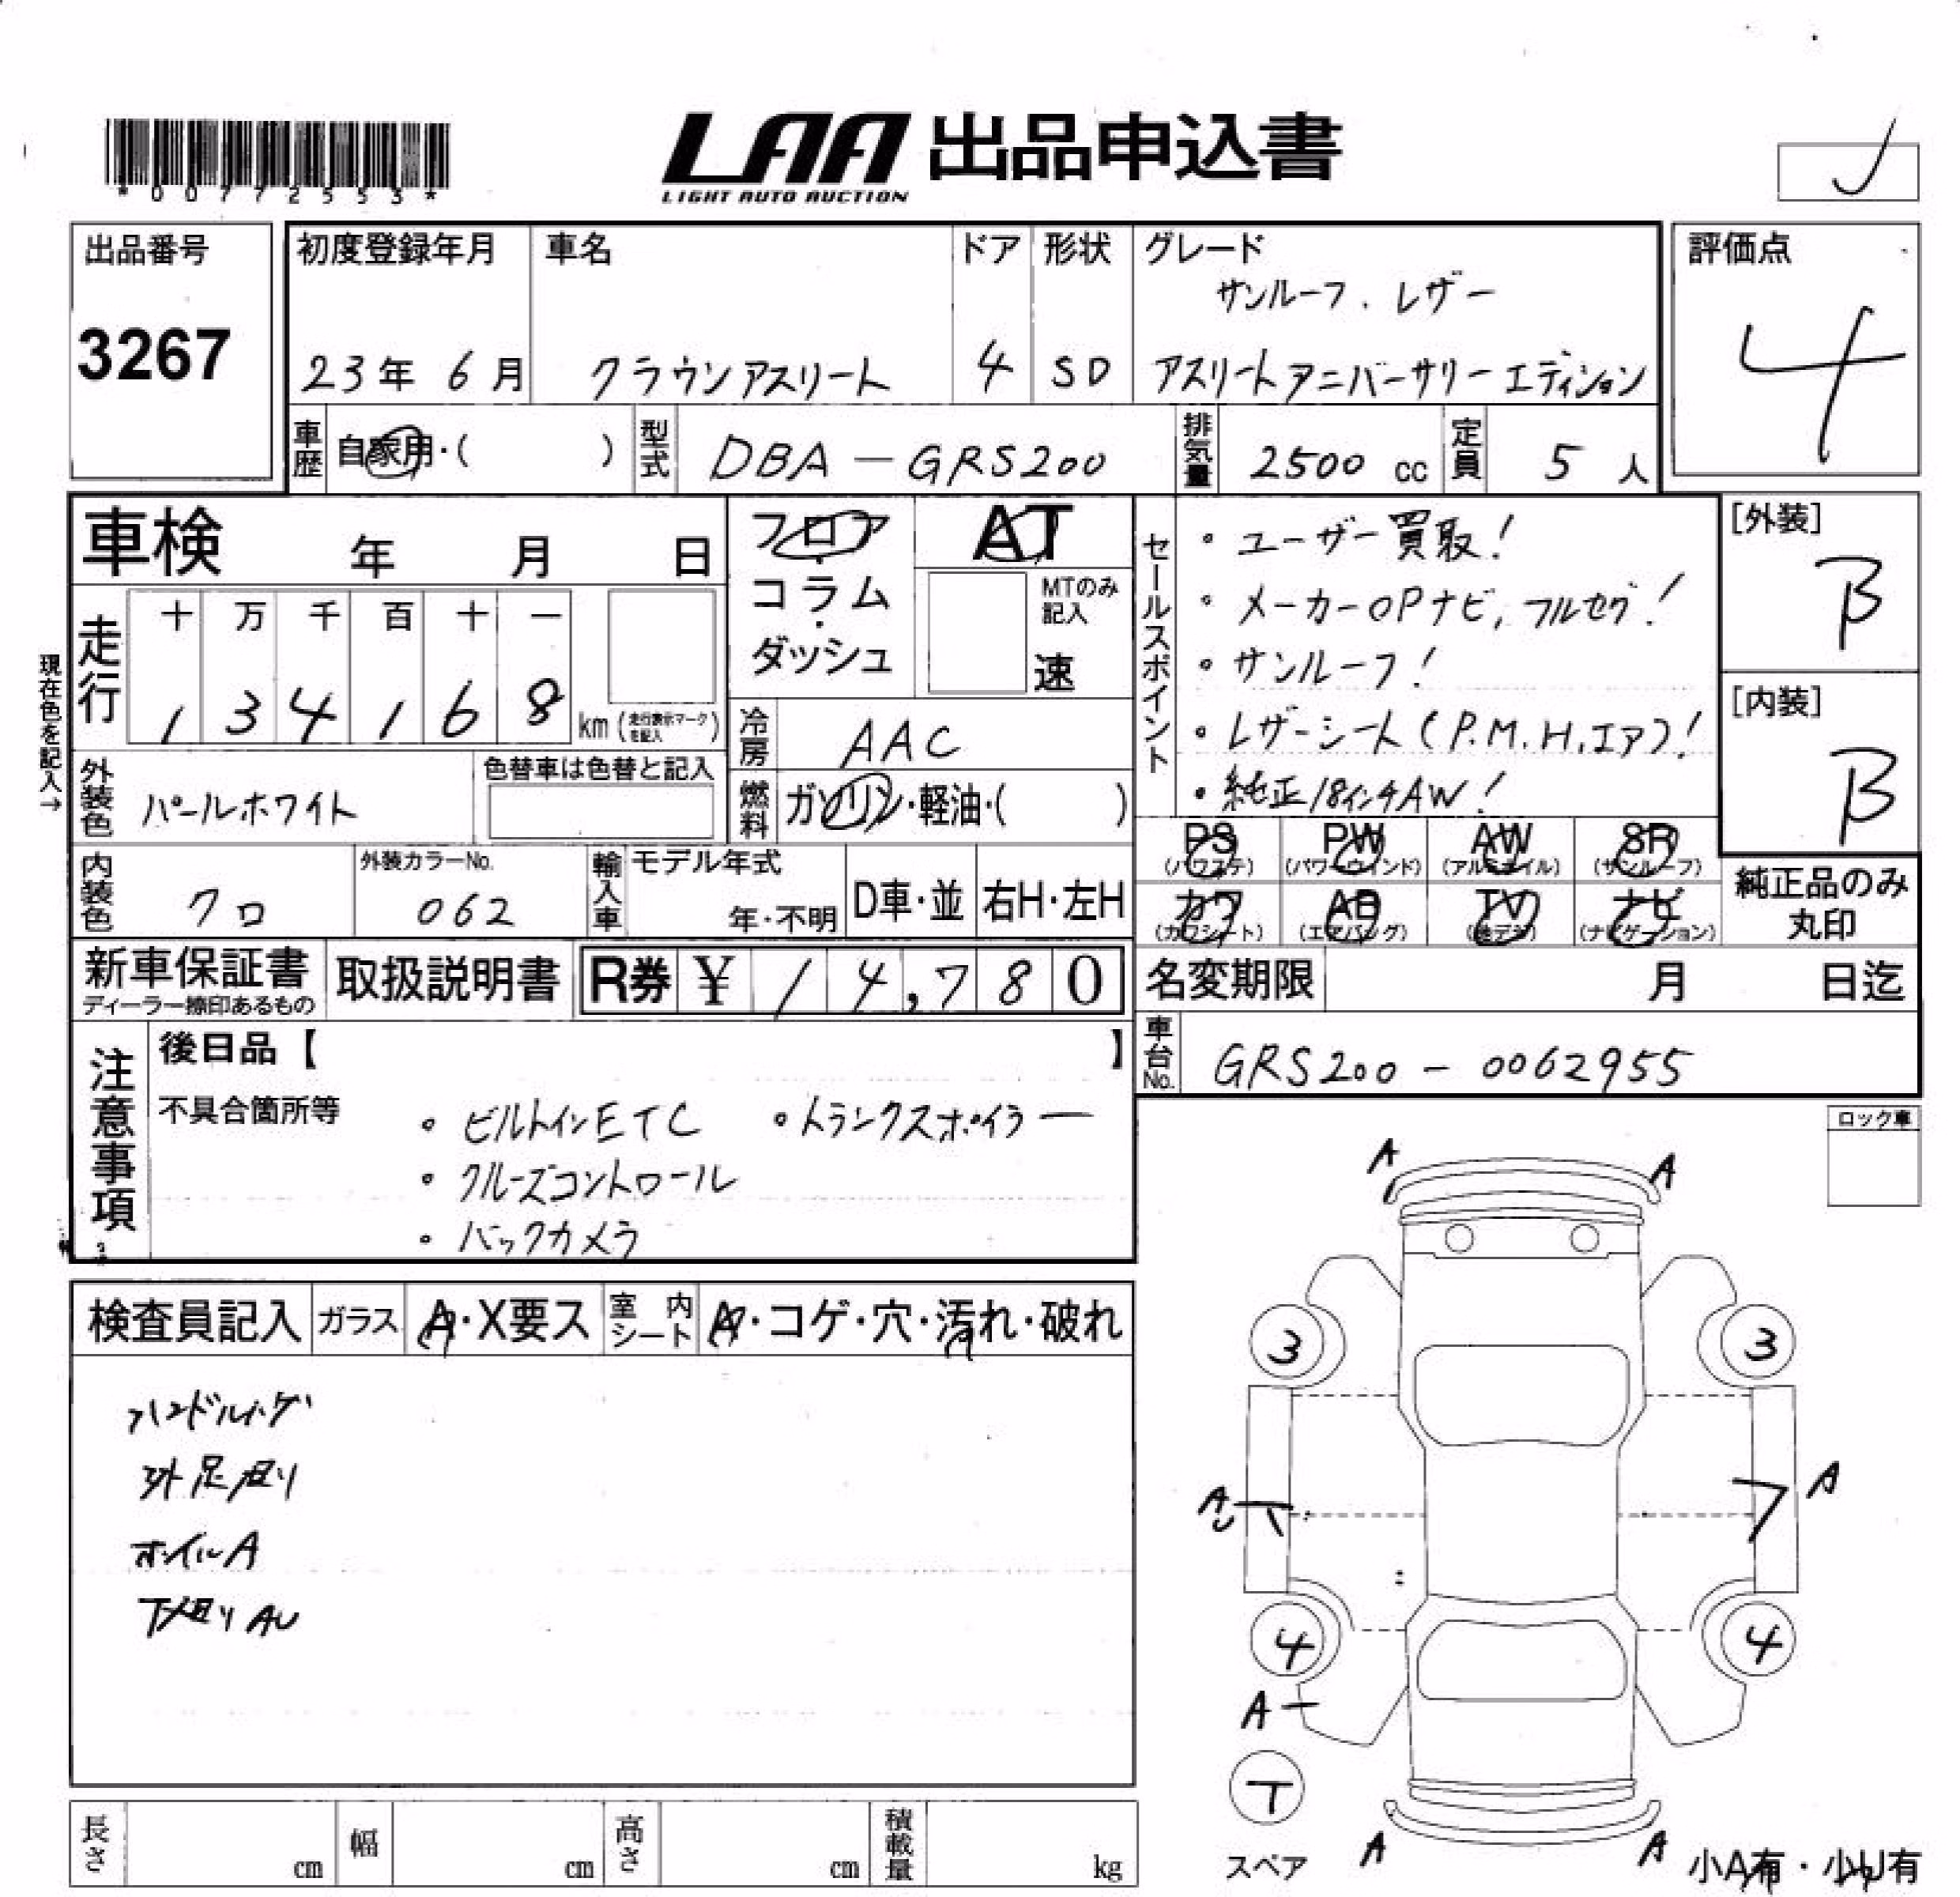 *00772553*
LAA 出品申込書
LIGHT AUTO AUCTION
出品番号
3267
初度登録年月
23年 6月
車名
クラウンアスリート
ドア
4
形状
SD
グレード
サンルーフ. レザー
アスリートアニバーサリーエディション
評価点
4
車歴 自家用・( )
型式 DBA-GRS200
排気量 2500 cc
定員 5 人
車検 年 月 日
現在色を記入→
走行
十 万 千 百 十 一
1 3 4 1 6 8 km (走行表示マークを記入)
フロア
・
コラム
・
ダッシュ
AT
MTのみ記入
速
冷房 AAC
燃料 ガソリン・軽油・( )
外装色 パールホワイト
色替車は色替と記入
内装色 クロ
外装カラーNo.
062
輸入車 モデル年式
年・不明
D車・並
右H・左H
セールスポイント
・ユーザー買取!
・メーカーOPナビ, フルセグ!
・サンルーフ!
・レザーシート(P.M.H.エア)!
・純正18インチAW!
[外装]
B
[内装]
B
PS (パワステ)
PW (パワーウインド)
AW (アルミホイル)
SR (サンルーフ)
カワ (カワシート)
AB (エアバッグ)
TV (地デジ)
ナビ (ナビゲーション)
純正品のみ
丸印
新車保証書
ディーラー捺印あるもの
取扱説明書
R券 ¥ 14,780
名変期限 月 日迄
車台No. GRS200-0062955
注意事項
後日品【 】
不具合箇所等
・ビルトインETC ・トランクスポイラー
・クルーズコントロール
・バックカメラ
ロック車
検査員記入
ガラス A・X要ス
室内シート A・コゲ・穴・汚れ・破れ
ハンドルハゲ
外足廻り
ホイルA
下廻りAU
A A
3 3
A A
4 4
A
T
スペア
A A
小A有・小U有
長さ cm
幅 cm
高さ cm
積載量 kg